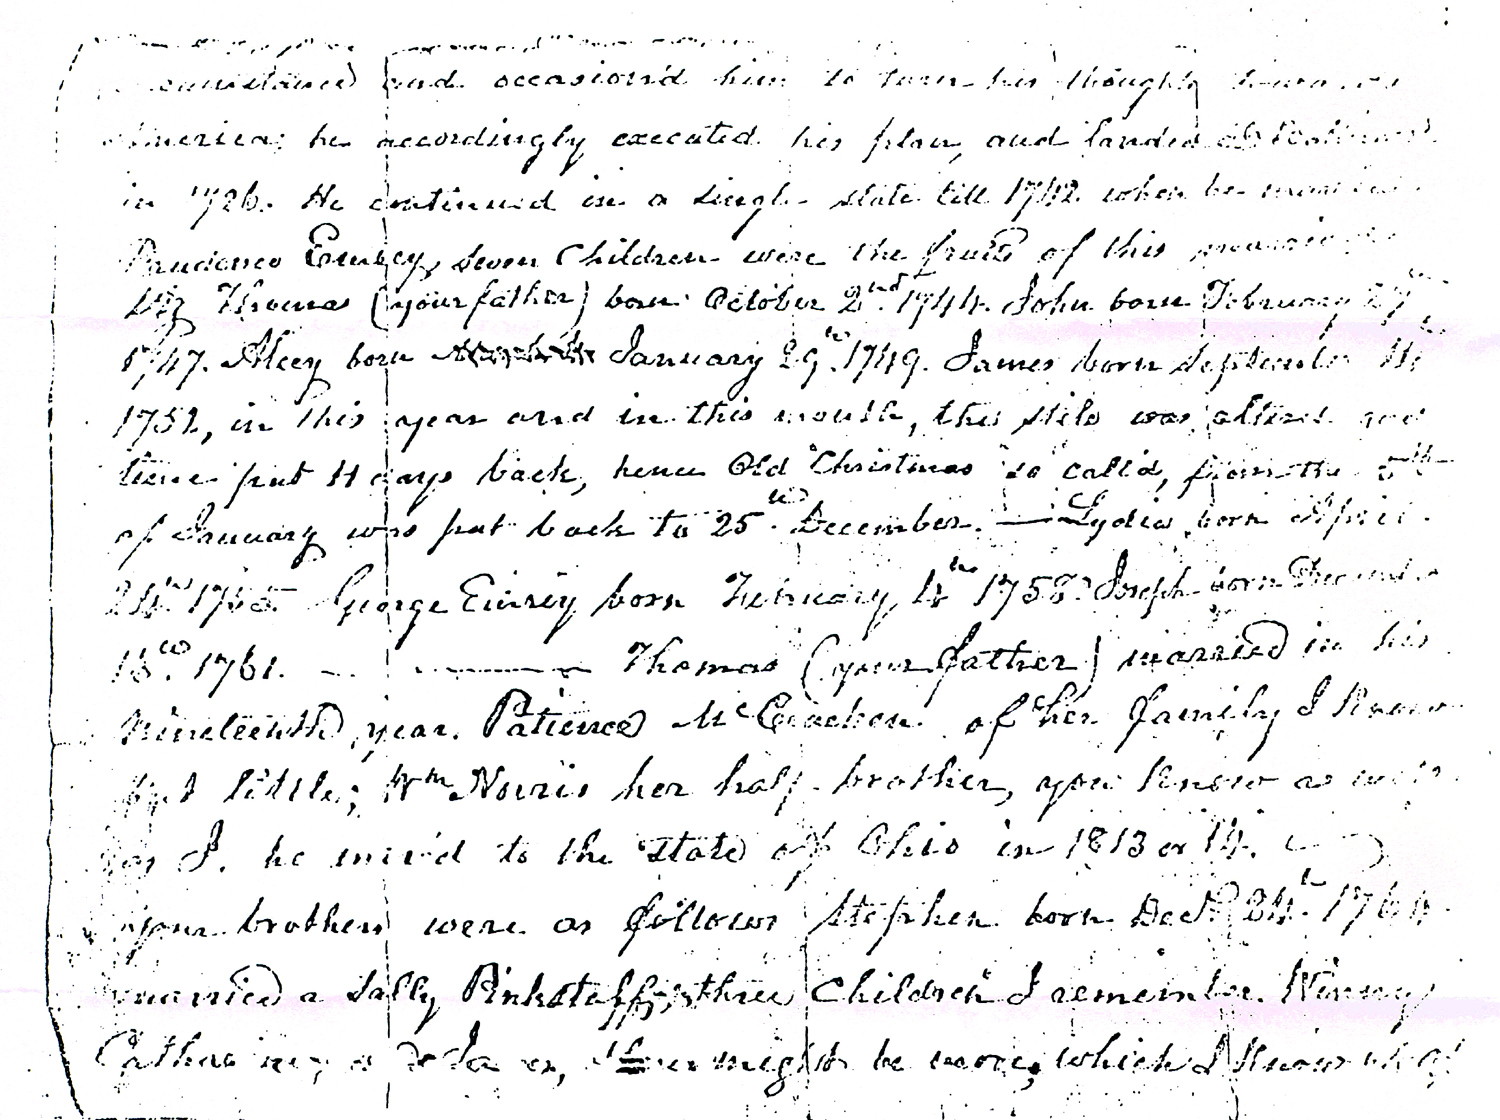 and occasion'd him to turn his thoughts towards
America; he accordingly executed his plan, and landed at
in 1726. He continued in a single state till 1742 when he married
Prudence Emrey, seven Children were the fruits of this marriage
Viz Thomas (your father) born October 2nd. 1744. John born February 27th
1747. Alcey born January 29th. 1749. James born September 14
1752, in this year and in this month, the stile was altered and
time put 11 days back, hence Old Christmas so call'd, from the 5th
of January was put back to 25th December. — Lydia born April
24th 1755 George Emrey born February 14th 1758 Joseph born December
15th. 1761. — — Thomas (your father) married in his
Nineteenth year. Patience McCrachen of her family I Know
but little; Wm Norris her half brother, you Know as well
as I. he mov'd to the state of Ohio in 1813 or 14.
your brothers were as follows Stephen born Decr. 24th. 1764
married a Sally Pinkstaff, three Children I remember. Winny
might be more, which I Know not of